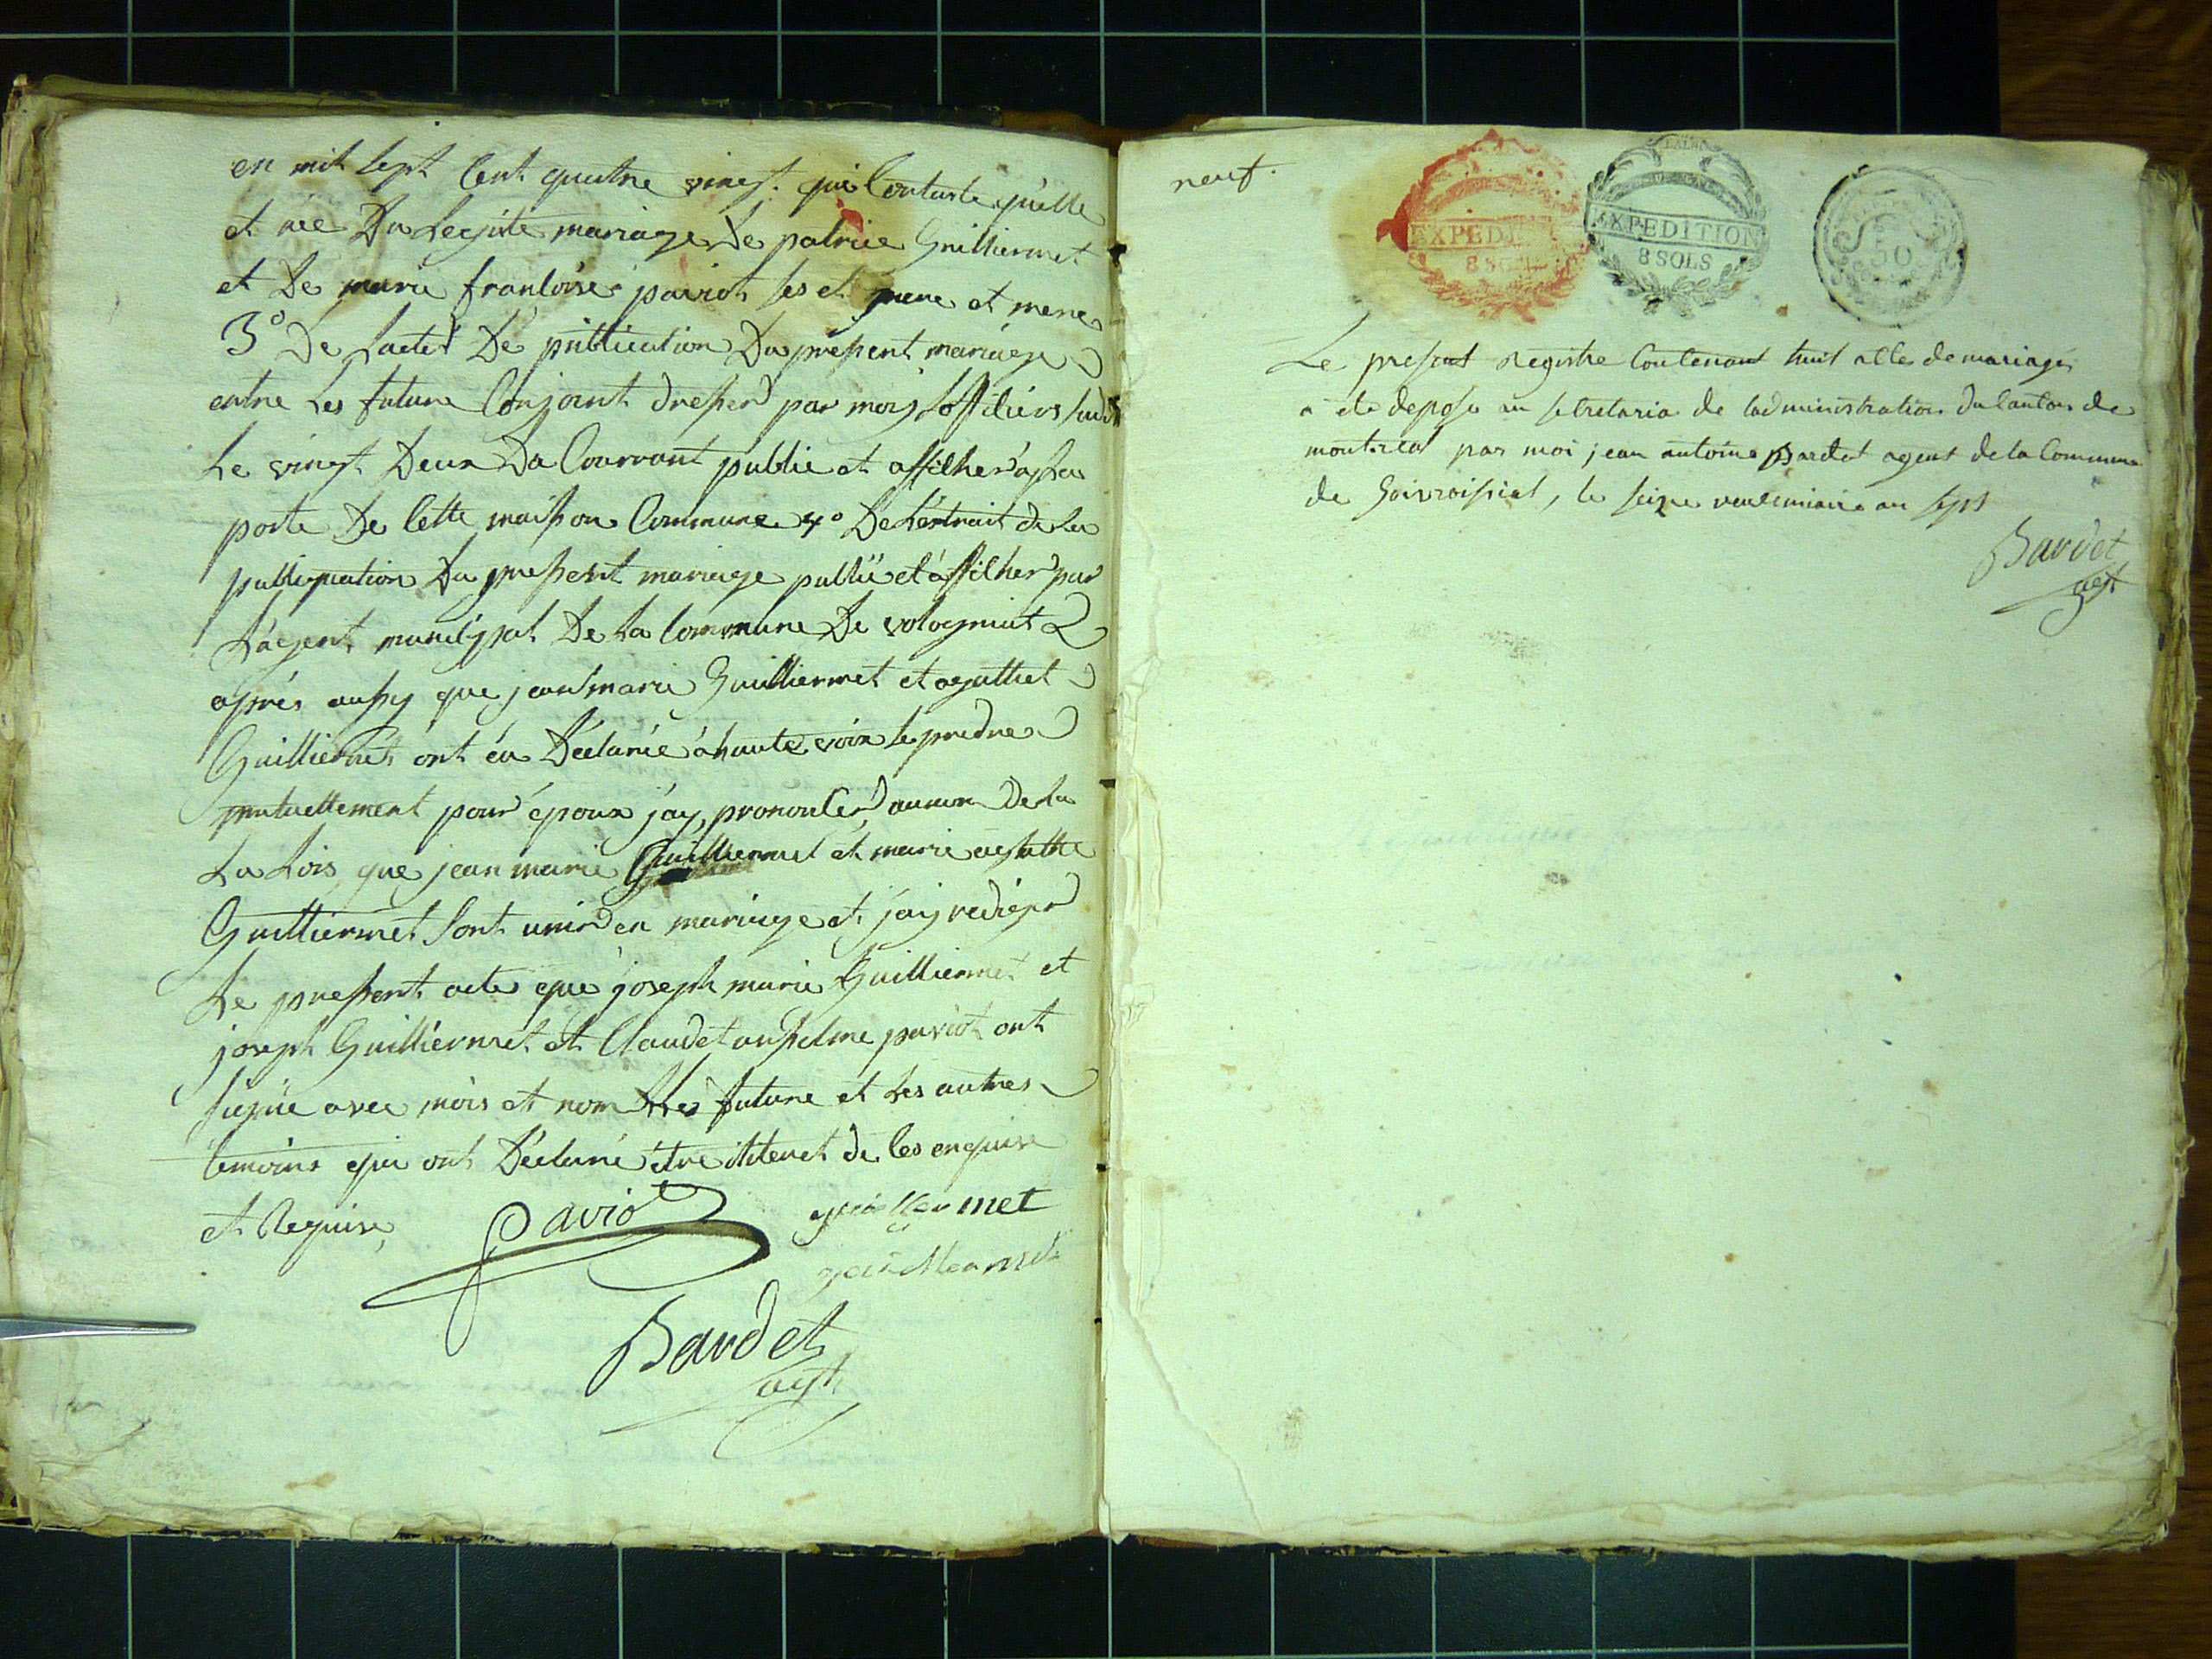 en mil sept Cent quatre vingt. qui Contaste qu'elle
et née Du Legite mariage De patrice Guilliermet
et De marie francoise paviot ses et pere et mere
3º De Lacte De publication Du present mariage
entre Les future Conjoint dresser par mois Lofficiers susd
Le vingt Deux Du Courrant publie et afficher a la
porte De Cette maison Commune 4º De L'extrait de La
publiquation Du present mariage publié et afficher par
L'agent municipal De La Commune De volognat
aprés aussy que jean marie Guilliermet et agathe
Guilliermet ont éu Déclarée á haute voix se predre
mutuellement pour époux j'ay prononcer aunom De La
La Lois que jean marie Guilliermet et marie agathe
Guilliermet Sont unis en mariage et j'ay rediger
Le present acte que joseph marie Guilliermet et
joseph Guilliermet et Claude anselme paviot ont
signé avec mois et non Les future et Les autres
temoins qui ont Déclaré être illiteret de Ces enquise
et Requise,
Paviot guillermet
guillermet
Bardet
agt
neuf.
EXPEDITION
8 SOLS
EXPEDITION
8 SOLS
50
Le present Registre Contenant huit actes de mariages
a ete deposé au secretaria de ladministration du Canton de
montreal par moi jean antoine Bardet agent de la Commune
de Soirroisiat, le seize vendemiaire an sept
Bardet
agt